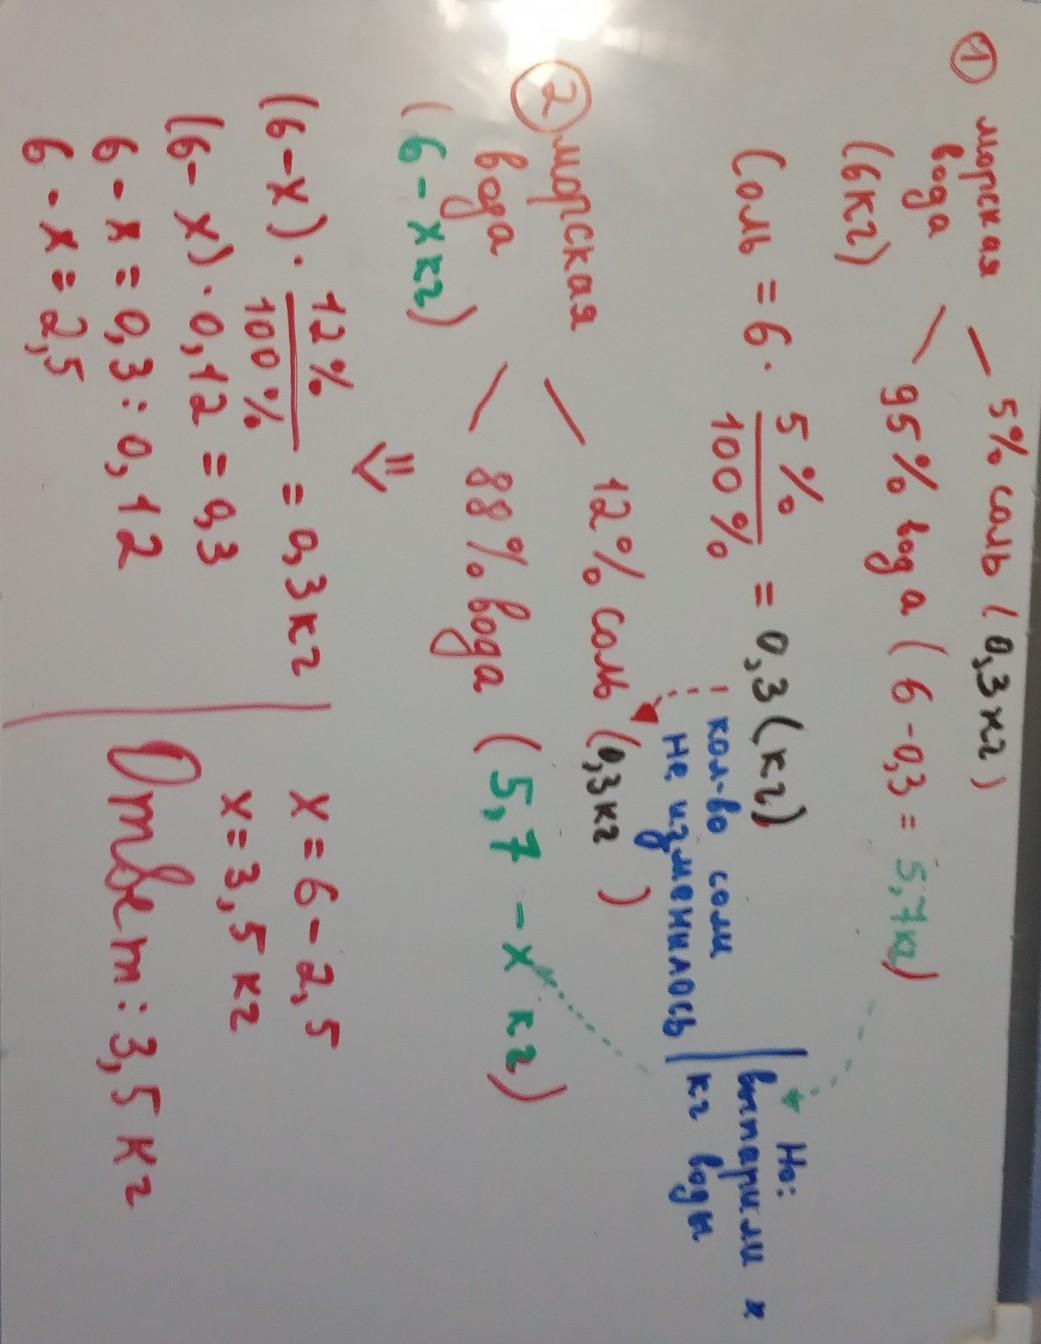 ① морская
вода
(6кг)
5% соль (0,3кг)
95% вода (6-0,3 = 5,7кг)
Соль = 6 · 5%/100% = 0,3(кг)
кол-во соли
не изменилось
Но:
выпарили х
кг воды
② морская
вода
(6-хкг)
12% соль (0,3кг)
88% вода (5,7 -х кг)
⇓
(6-х) · 12%/100% = 0,3кг
(6-х) · 0,12 = 0,3
6-х = 0,3 : 0,12
6-х = 2,5
х = 6 - 2,5
х = 3,5 кг
Ответ: 3,5 кг